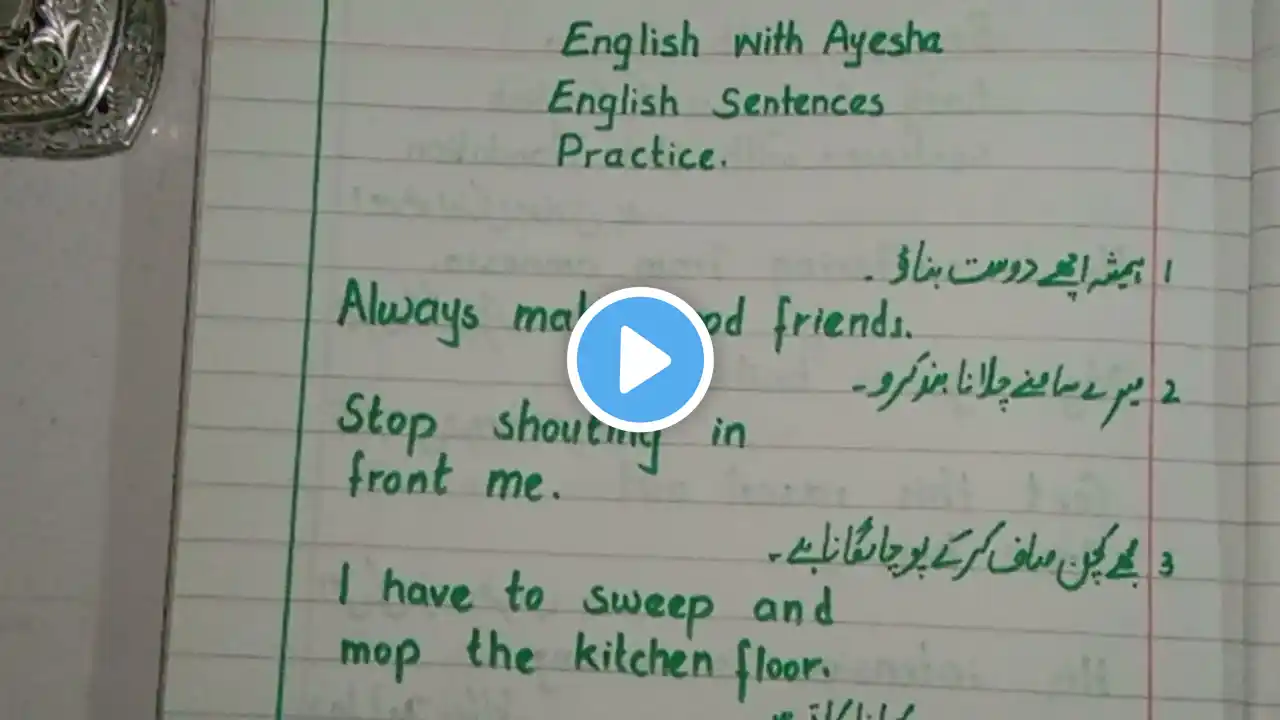 English with Ayesha
English Sentences
Practice.
1 ہمیشہ اچھے دوست بناؤ ۔
Always friends.
2 میرے سامنے چلانا بند کرو۔
Stop shouting in
front me.
3 مجھے کچن صاف کر کے پوچا لگانا ہے۔
I have to sweep and
mop the kitchen floor.